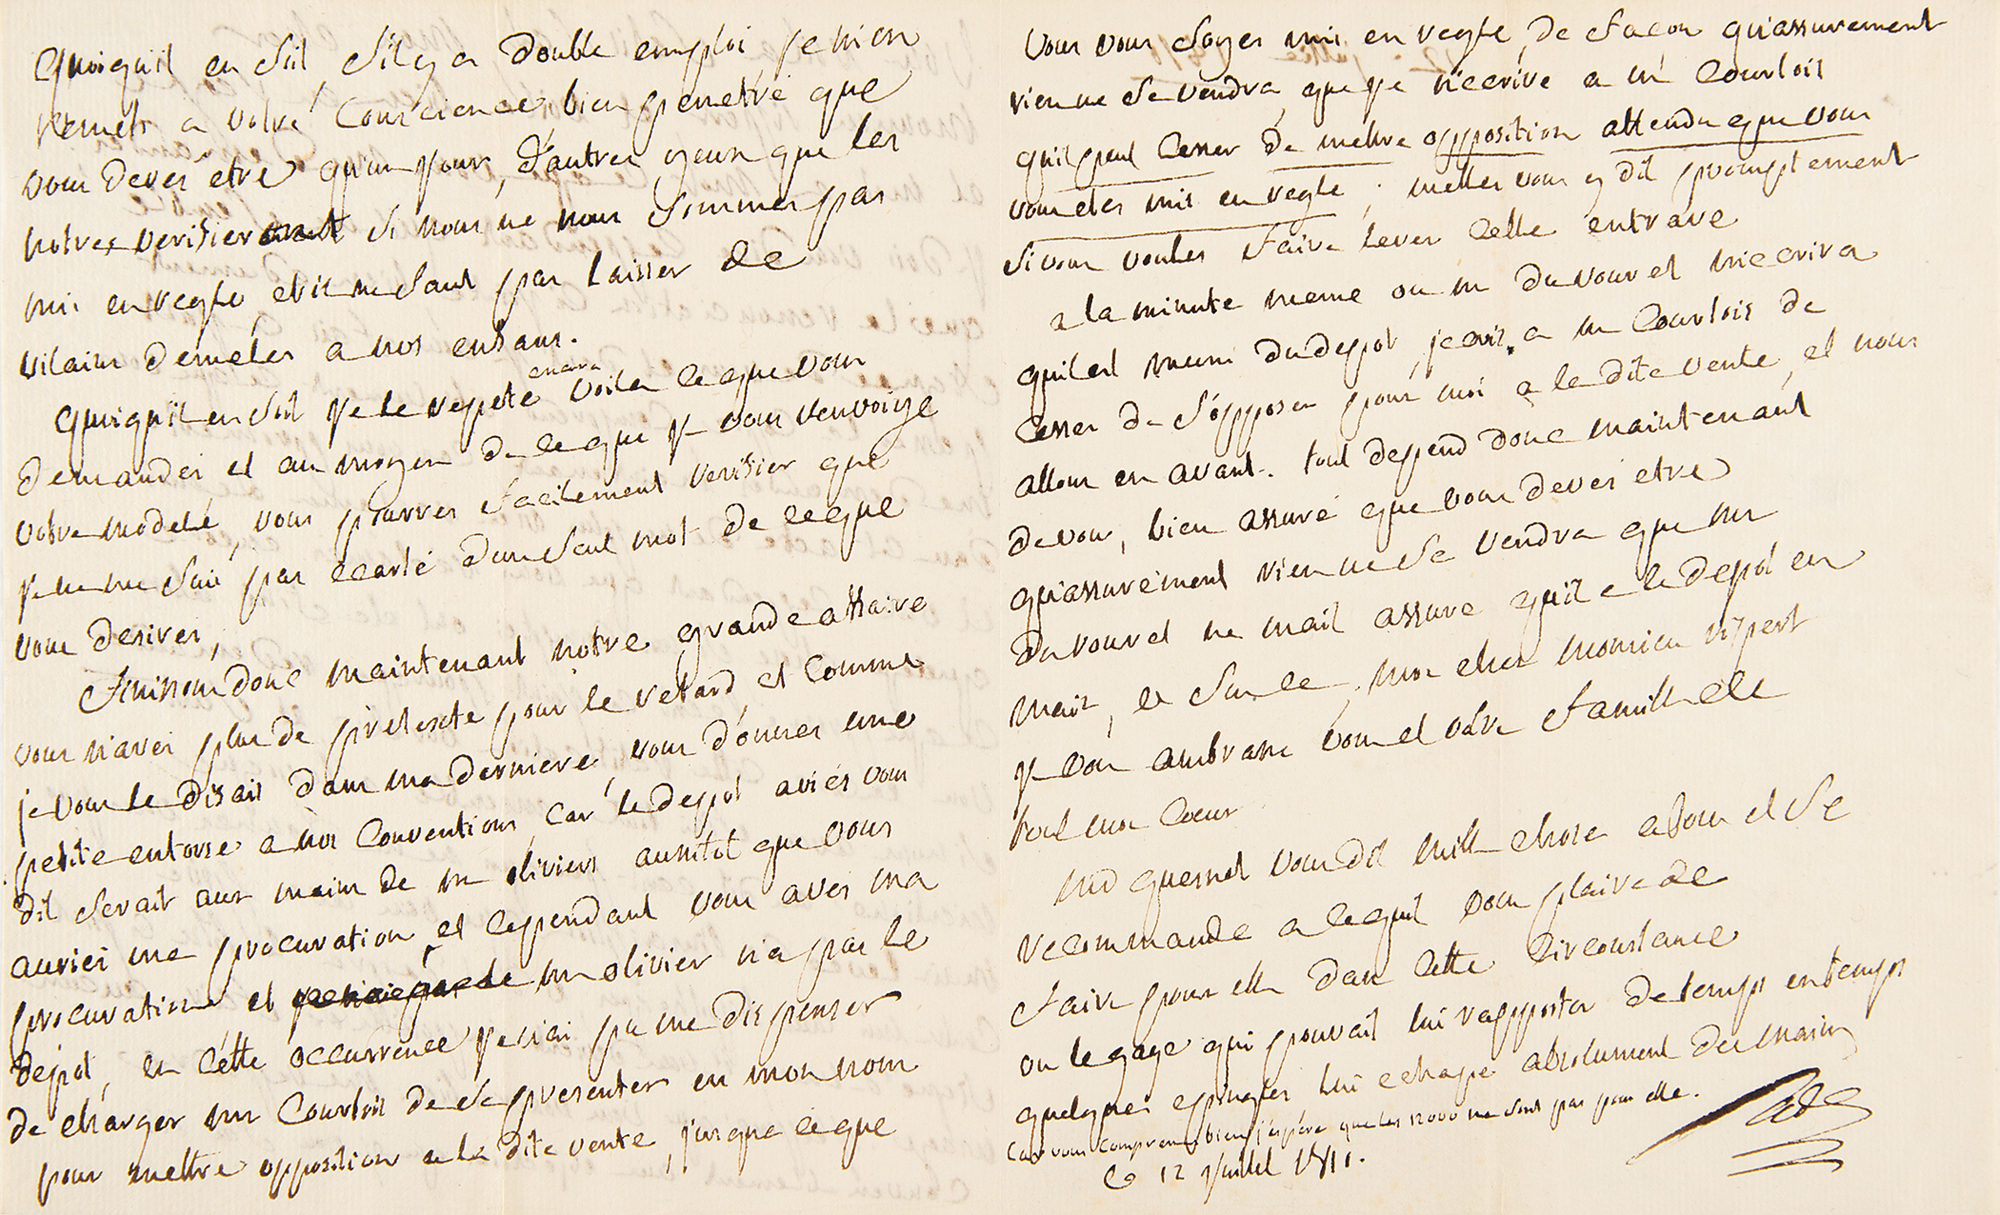 Quoiquil en soit, sil y a double emploi je m'en
remets a votre Conscience, bien penetré que
vous devés etre qu'un jour, d'autres yeux que les
notres verifieront si nous ne nous sommes pas
mis en regle, et il ne faut pas laisser de
vilains demeles a nos enfans.
Quoiquil en soit je le repete encore voila ce que vous
demandés et au moyen de ce que je vous renvoye
votre modele, vous pourres facilement verifier que
je ne me suis pas ecarté d'un seul mot de ce que
vous desires,
finissons donc maintenant notre grande affaire
vous n'avés plus de pretexte pour le retard, et comme
je vous le disais dans ma derniere, vous donnes une
petite entorse a nos Conventions, car le depot aviés vous
dit serait aux mains de mr oliviers aussitot que vous
auriés ma procuration, et cependant vous avés ma
procuration et mr olivier n'a pas le
dépot, en cette occurrence je n'ai pu me dispenser
de charger mr Courtois de se presenter en mon nom
pour mettre opposition a la dite vente, jusqua ce que
vous vous soyes mis en regle, de facon qu'assurement
rien ne se vendra, que je n'ecrive a mr Courtois
quil peut cesser de mettre opposition attendu que vous
vous etes mis en regle; mettes vous y dit promptement
si vous voules faire lever cette entrave
a la minute meme ou mr du rouret m'ecrira
quil est muni du depot, j'ecris a mr Courtois de
cesser de s'opposer pour moi a la dite vente, et nous
allons en avant. tout depend donc maintenant
de vous, bien assuré que vous devés etre
qu'assurément rien ne se vendra que mr
du rouret ne m'ait assuré quil a le depot en
main, mon cher monsieur ripert
je vous embrasse vous et votre famille de
tout mon coeur
md quesnet vous dit mille choses a tous et se
recommande a ce quil vous plaise de
faire pour elle dans cette circonstance
ou le gage qui pouvait lui rapporter de temps en temps
quelques epingles lui echape absolument des mains
Car vous comprenes bien j'espere que les 12000 ne sont pas pour elle.
Ce 12 juillet 1811.
Sade